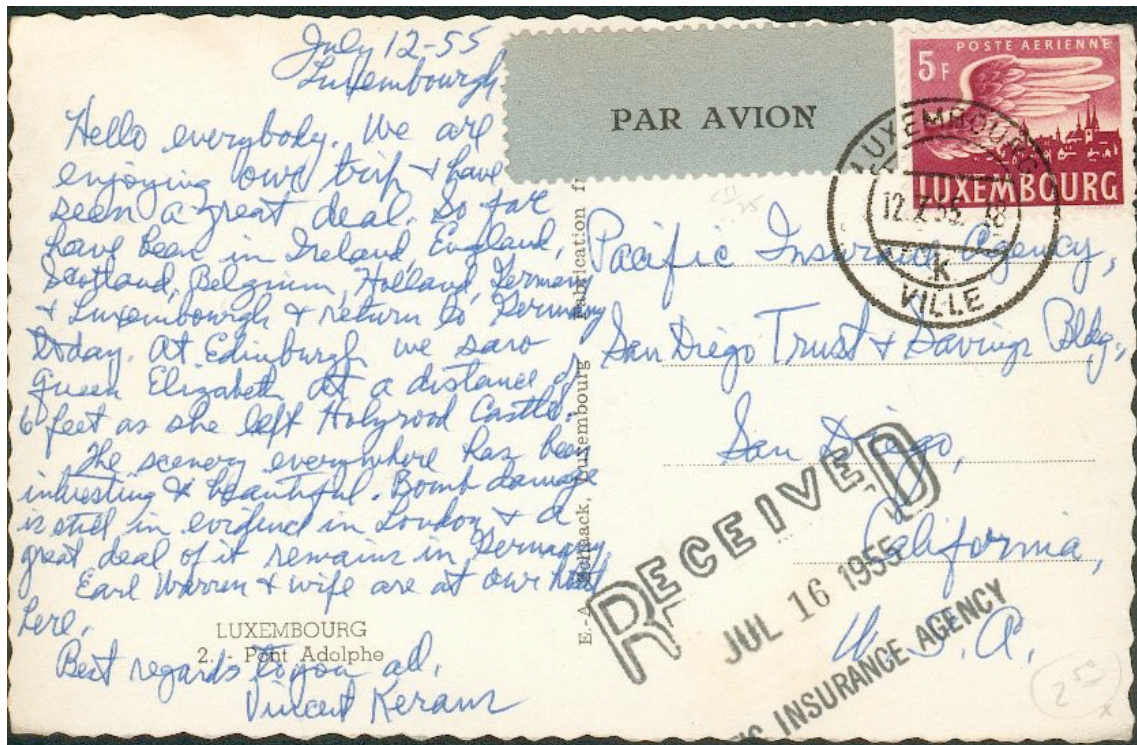 July 12-55
Luxembourgh
Hello everybody. We are
enjoying our trip & have
seen a great deal. So far
have been in Ireland, England,
Scotland, Belgium, Holland, Germany
& Luxembourgh & return to Germany
today. At Edinburgh we saw
Queen Elizabeth at a distance of
6 feet as she left Holyrood Castle.
The scenery everywhere has been
interesting & beautiful. Bomb damage
is still in evidence in London & a
great deal of it remains in Germany.
Earl Warren & wife are at our hotel
here.
Best regards to you all.
Vincent
LUXEMBOURG
2. - Pont Adolphe
E.-A. Schaack, Luxembourg Fabrication
PAR AVION
POSTE AERIENNE
5F
LUXEMBOURG
LUXEMBOURG
12.7.55. 18
K
VILLE
Pacific Insurance Agency,
San Diego Trust & Savings Bldg.,
San Diego,
California,
U.S.A.
RECEIVED
JUL 16 1955
INSURANCE AGENCY
2 50
x